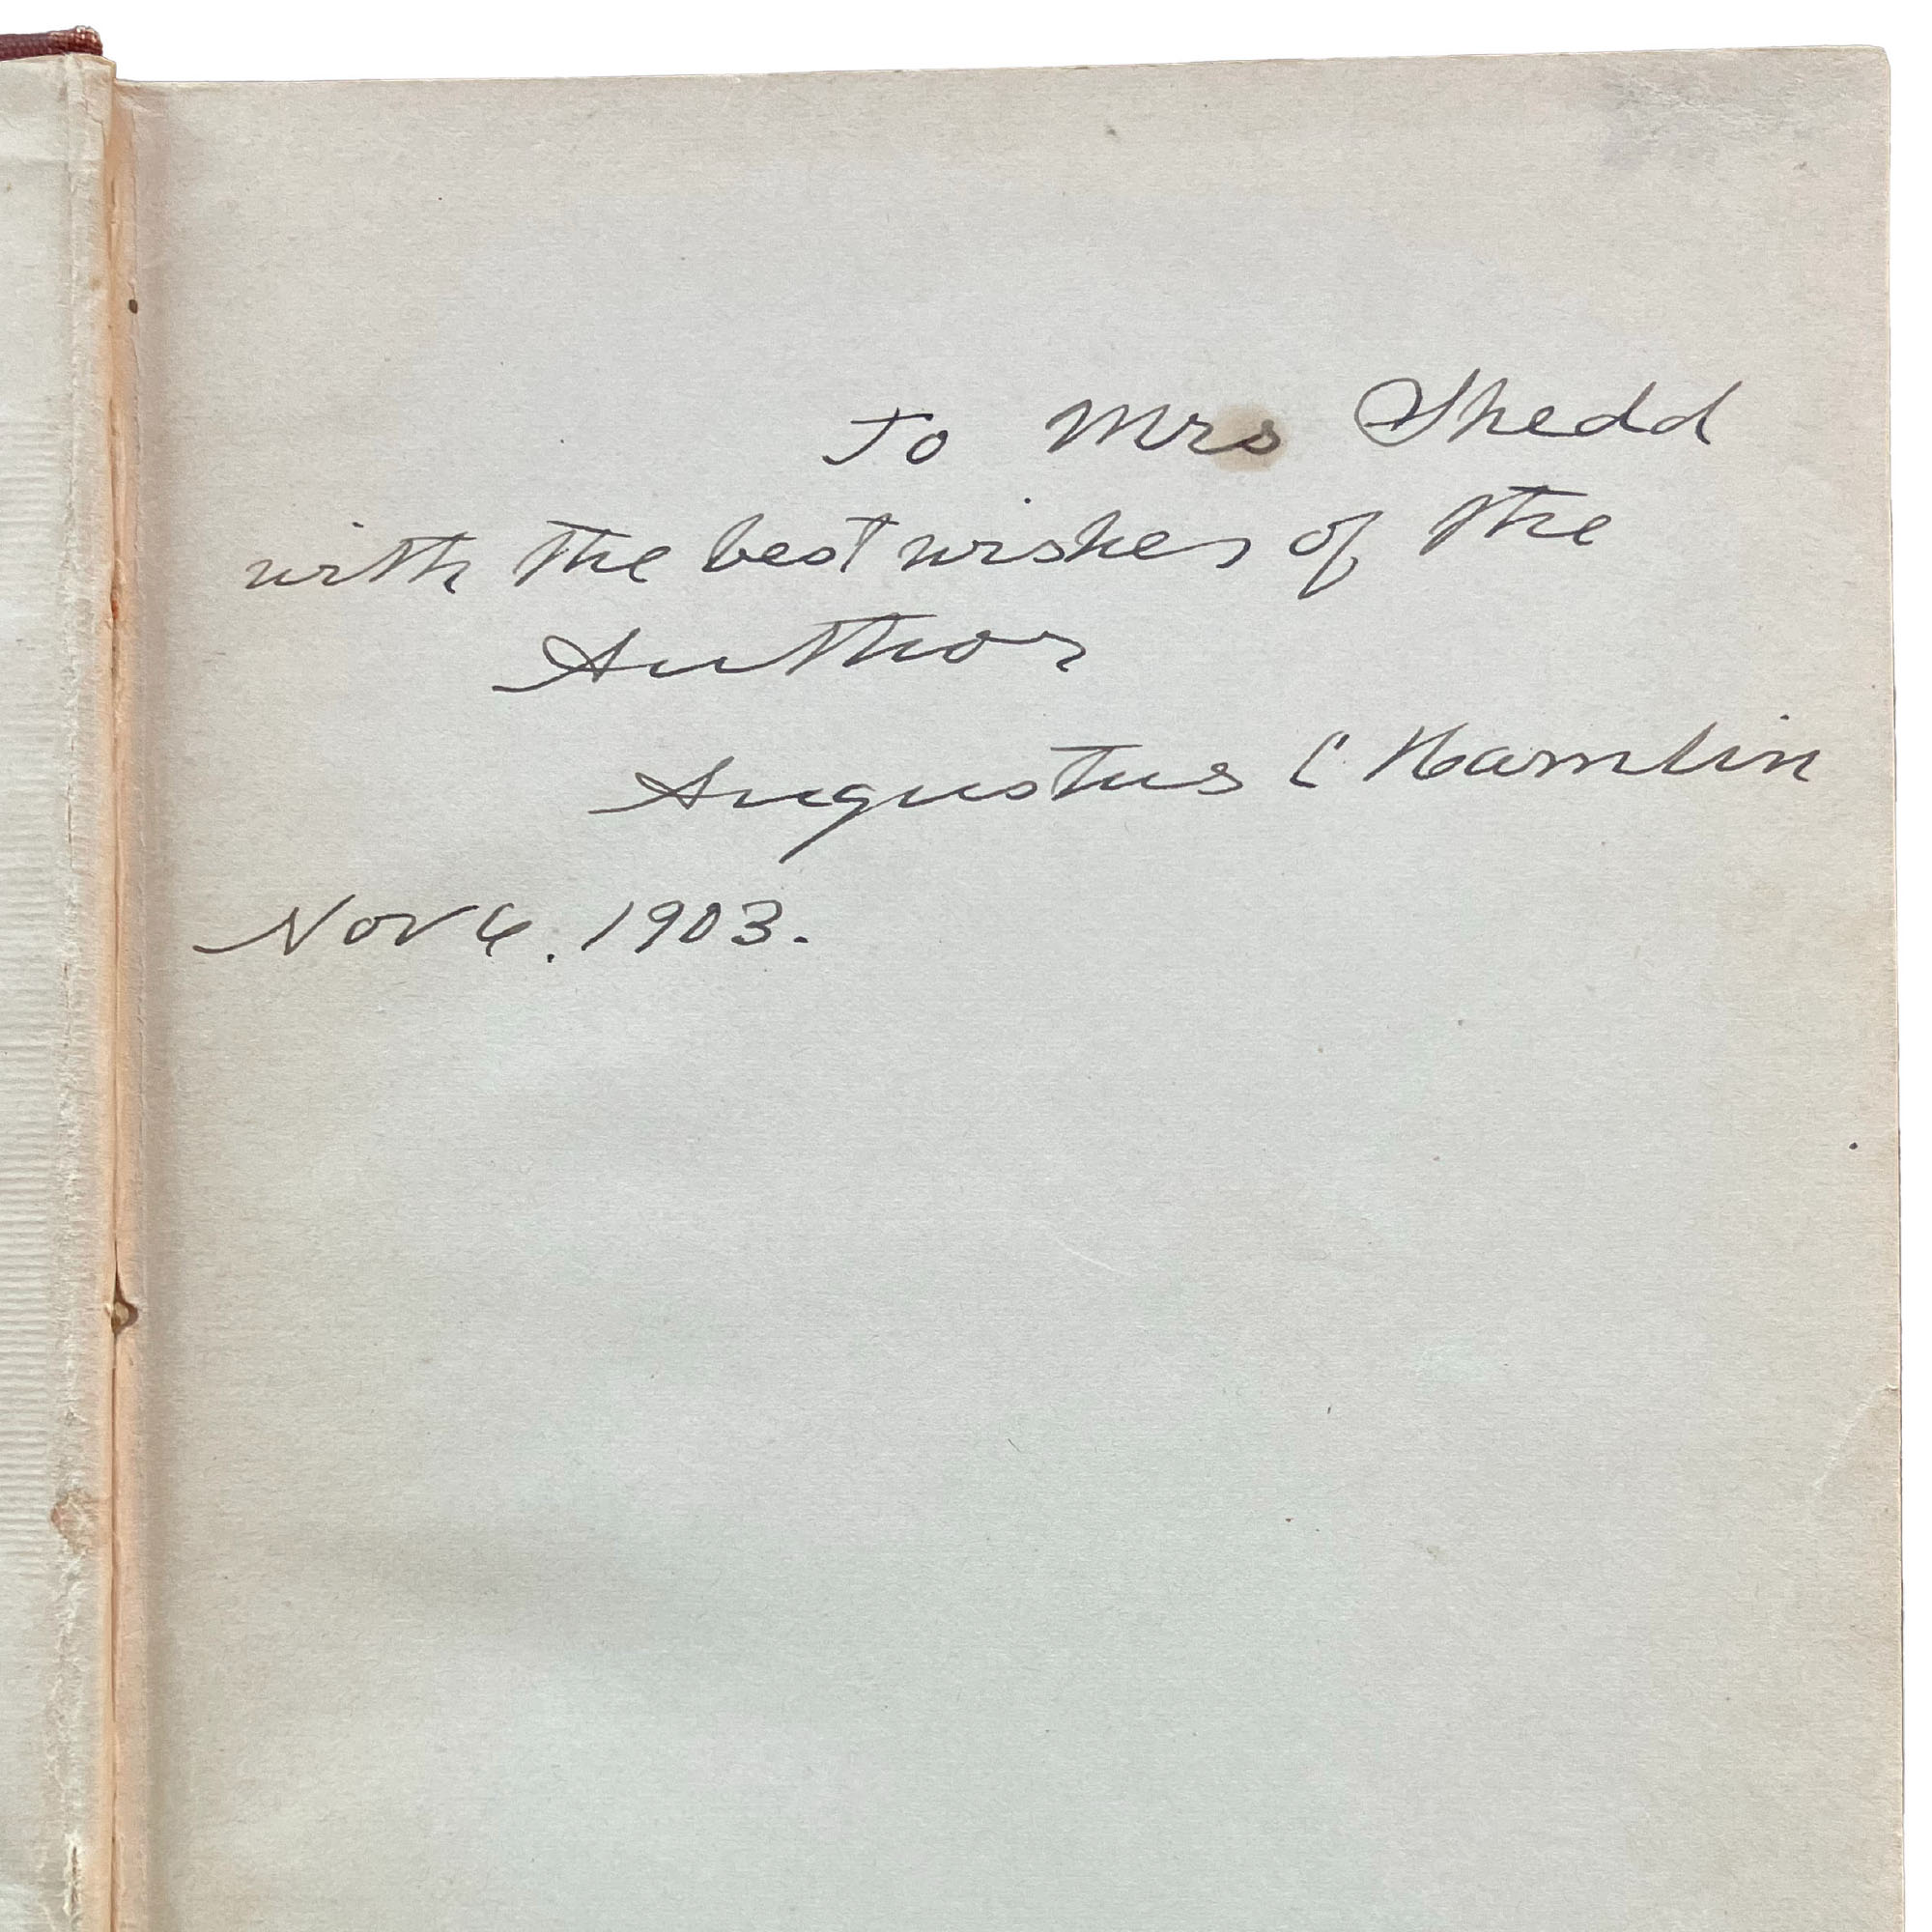 To Mrs Shedd
with the best wishes of the
Author
Augustus C Hamlin
Nov 6. 1903.